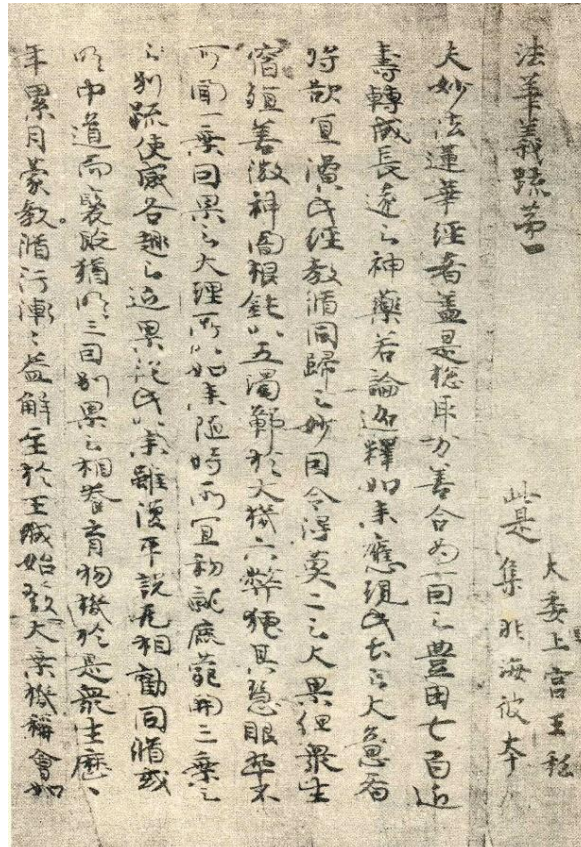 法華義疏第一
此是
大委上宮王私
集非海彼本
夫妙法蓮華經者蓋是惣取万善合為一因之豊田七百近
壽轉成長遠之神藥若論迦釋如来應現此土之大意者
将欲宜演此經教脩同歸之妙因令得莫二之大果但衆生
宿殖善微神闇根鈍以五濁鄣於大機六弊掩其慧眼卒不
可聞一乗因果之大理所以如来随時所宜初就鹿菀開三乗之
之別疏使感各趣之近果從此以来雖復平説无相勸同脩或
明中道而褒貶猶明三因別果之相養育物機於是衆生歷
年累月蒙教脩行漸々益解至於王城始發大乗機稱會如